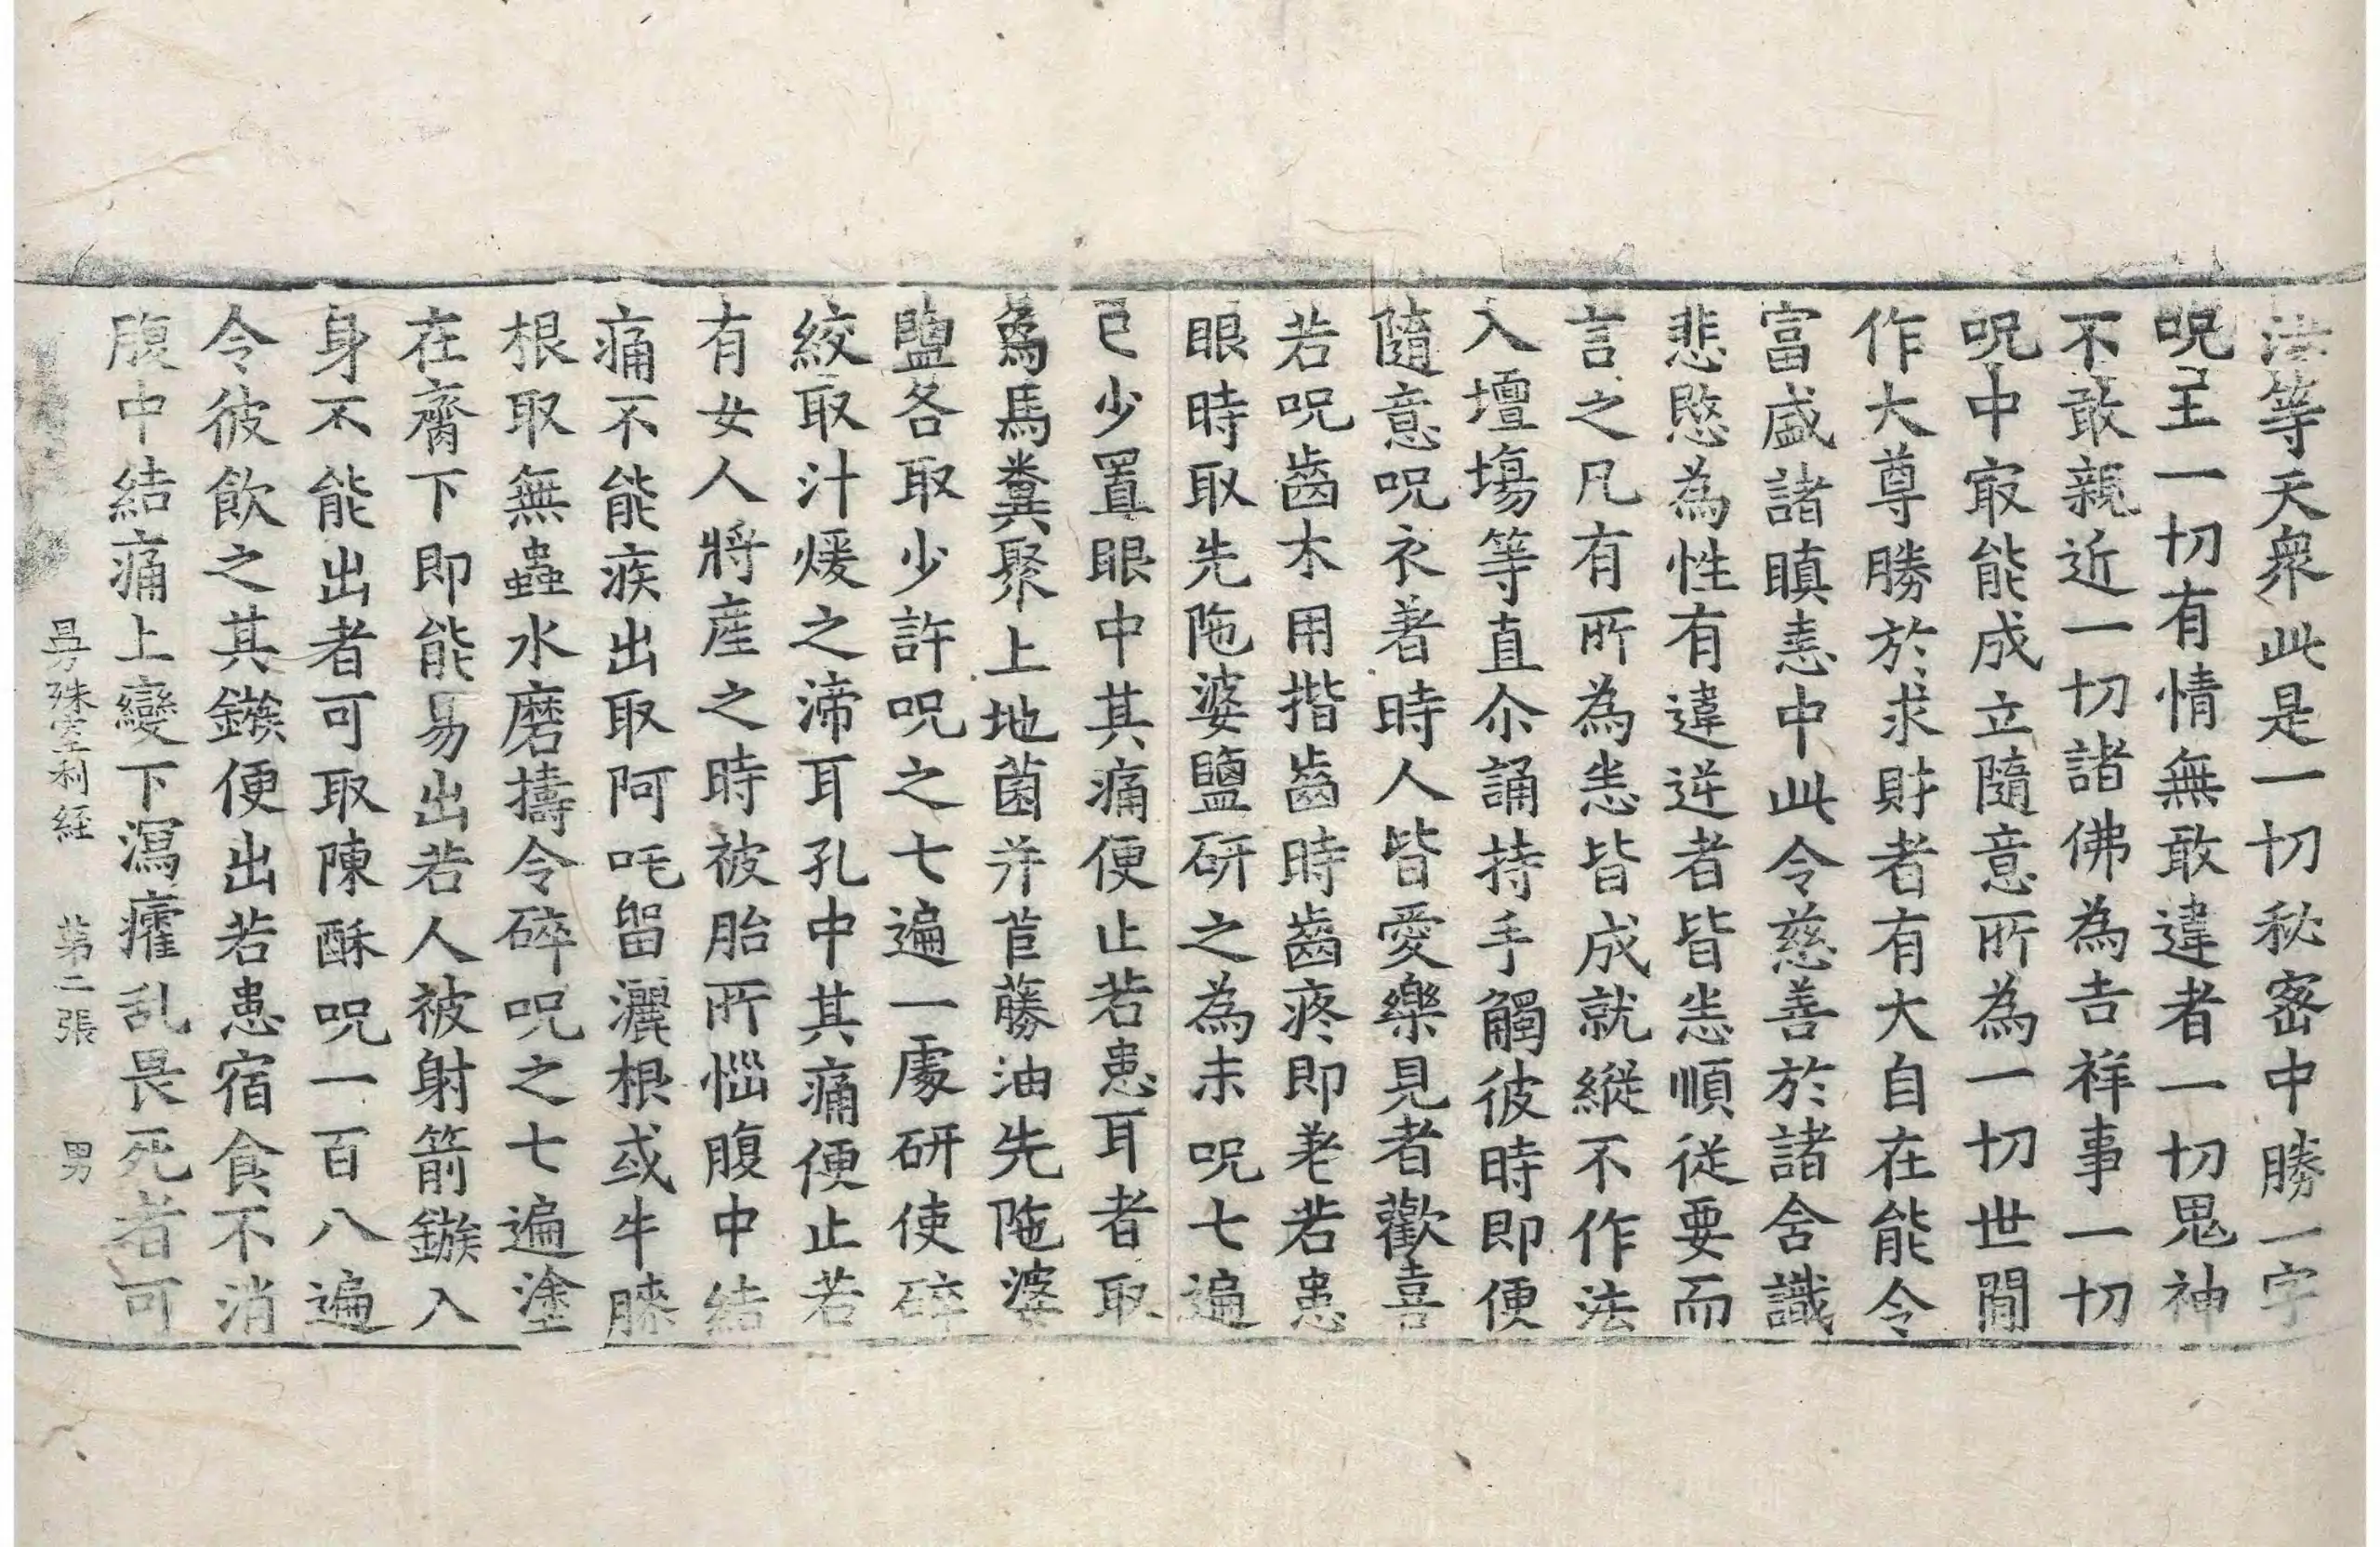 法等天衆此是一切秘密中勝一字
呪王一切有情無敢違者一切鬼神
不敢親近一切諸佛為吉祥事一切
呪中㝡能成立隨意所為一切世間
作大尊勝於求財者有大自在能令
富盛諸瞋恚中此令慈善於諸含識
悲愍為性有違逆者皆悉順從要而
言之凡有所為悉皆成就縱不作法
入壇場等直尒誦持手觸彼時即便
隨意呪衣著時人皆愛樂見者歡喜
若呪齒木用揩齒時齒疼即差若患
眼時取先陁婆鹽研之為末呪七遍
已少置眼中其痛便止若患耳者取
為馬糞聚上地菌并苣蕂油先陁婆
鹽各取少許呪之七遍一處研使碎
絞取汁煖之渧耳孔中其痛便止若
有女人將産之時被胎所惱腹中結
痛不能疾出取阿吒留灑根或牛膝
根取無蟲水磨擣令碎呪之七遍塗
在齊下即能易出若人被射箭鏃入
身不能出者可取陳酥呪一百八遍
令彼飲之其鏃便出若患宿食不消
腹中結痛上變下瀉癨乱畏死者可
曼殊室利経　第二張　男